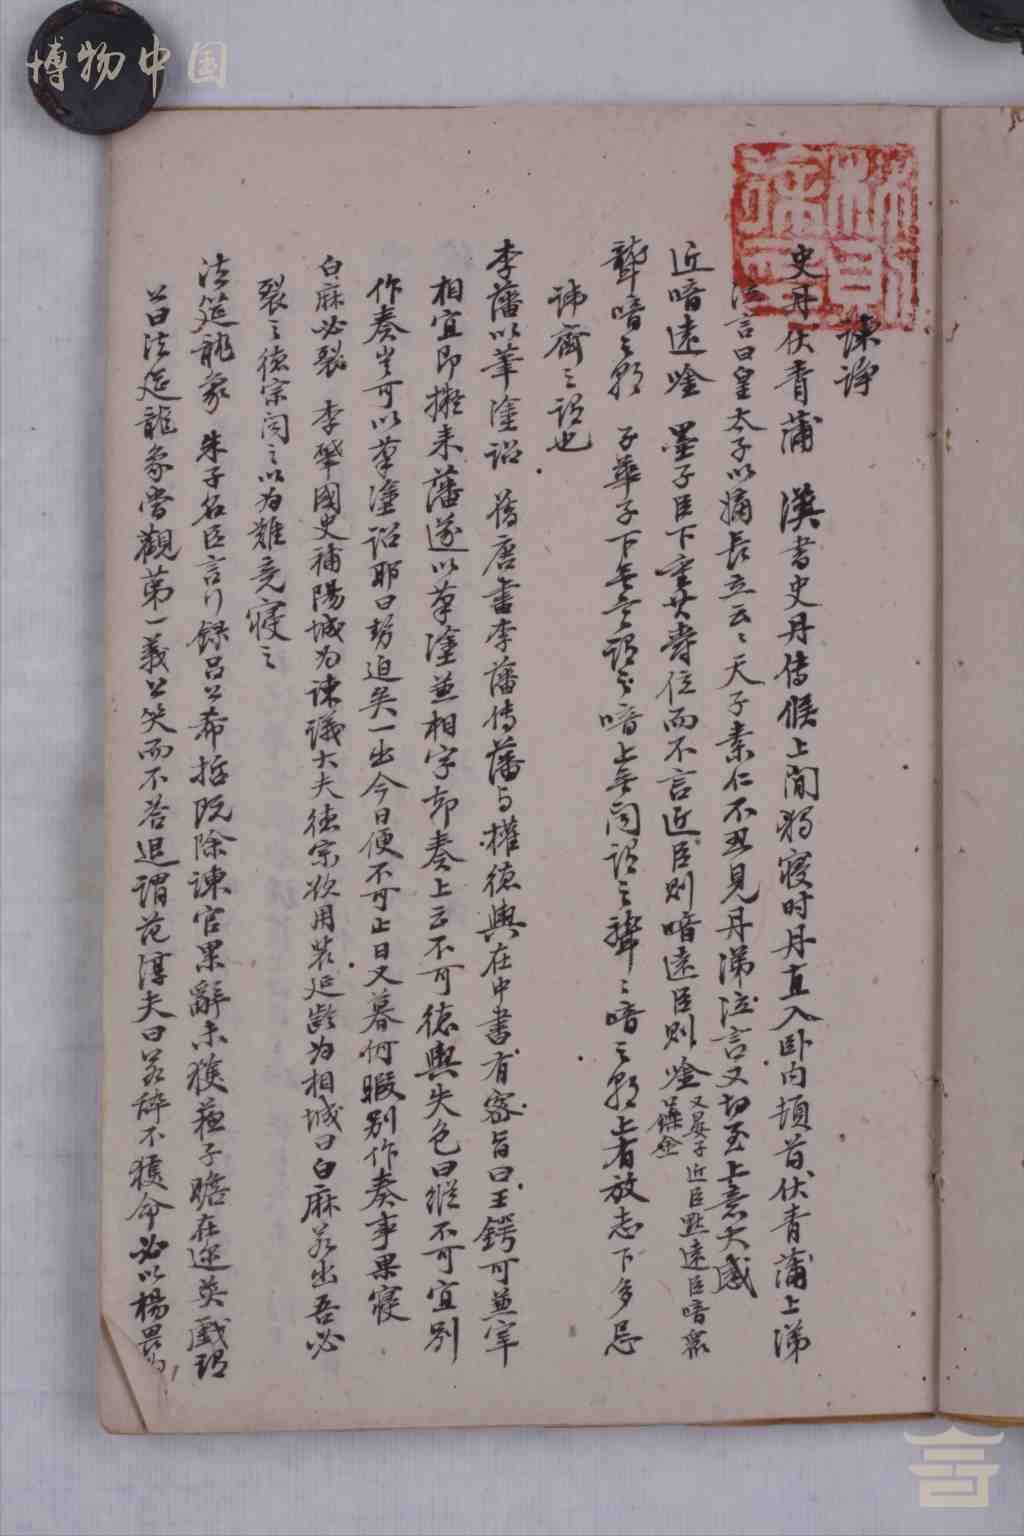 博物中国
諫諍
史丹伏青蒲 漢書史丹傳候上間獨寢时丹直入卧内頓首伏青蒲上涕
泣言曰皇太子以嫡長立云〻天子素仁不忍見丹涕泣言又切至上意大感
近喑遠唫 墨子臣下重其爵位而不言近臣则喑遠臣则唫
又晏子近臣嘿遠臣喑衆
口鑠金
聾喑之朝 子華子下無言謂之喑上無聞謂之聾〻喑之朝上者放志下多忌
諱齋之謂也
李藩以筆塗詔 舊唐書李藩傳藩与權德輿在中書有密旨曰王鍔可兼宰
相宜即擬来藩遂以筆塗兼相字却奏上云不可德輿失色曰縱不可宜别
作奏豈可以筆塗詔耶曰勢迫矣一出今日便不可止日又暮何暇别作奏事果寢
白麻必裂 李肇國史補陽城为諫議大夫德宗欲用裴延齡为相城曰白麻若出吾必
裂之德宗闻之以为難竟寢之
法筵龍象 朱子名臣言行録吕公希哲既除諫官累辭未獲蘇子瞻在邇英戲謂
公曰法筵龍象當觀第一義公笑而不荅退謂范淳夫曰若辞不獲命必以楊畏为